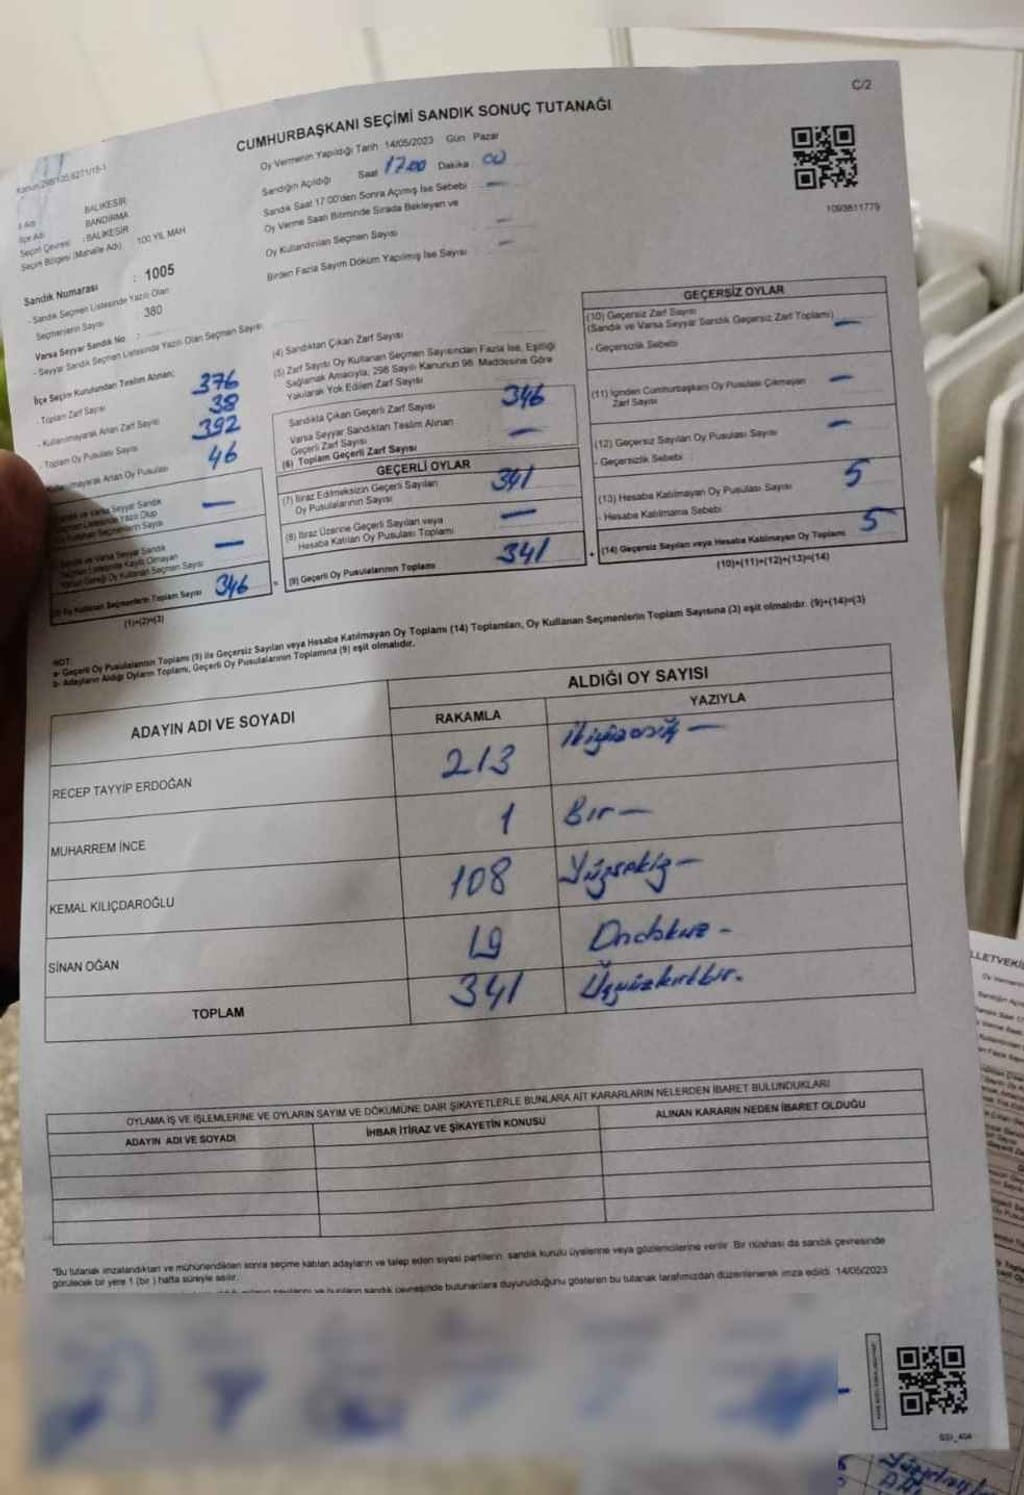 C/2
CUMHURBAŞKANI SEÇİMİ SANDIK SONUÇ TUTANAĞI
Oy Vermenin Yapıldığı Tarih 14/05/2023 Gün Pazar
Sandığın Açıldığı Saat 17.00 Dakika : 00
Sandık Saat 17.00'den Sonra Açılmış İse Sebebi —
Oy Verme Saati Bitiminde Sırada Bekleyen ve
Oy Kullandırılan Seçmen Sayısı —
Birden Fazla Sayım Döküm Yapılmış İse Sayısı —
1093811779
İl Adı BALIKESİR
İlçe Adı BANDIRMA
Seçim Çevresi : BALIKESİR
Seçim Bölgesi (Mahalle Adı) 100.YIL MAH
Sandık Numarası : 1005
- Sandık Seçmen Listesinde Yazılı Olan
Seçmenlerin Sayısı 380
Varsa Seyyar Sandık No :
- Seyyar Sandık Seçmen Listesinde Yazılı Olan Seçmen Sayısı
İlçe Seçim Kurulundan Teslim Alınan;
- Toplam Zarf Sayısı 376
- Kullanılmayarak Artan Zarf Sayısı 38
- Toplam Oy Pusulası Sayısı 392
Kullanılmayarak Artan Oy Pusulası 46
Sandık ve Varsa Seyyar Sandık
Seçmen Listesinde Yazılı Olup
Oy Kullanan Seçmenlerin Sayısı —
Sandık ve Varsa Seyyar Sandık
Seçmen Listesinde Kayıtlı Olmayan
Kanun Gereği Oy Kullanan Seçmen Sayısı —
(3) Oy Kullanan Seçmenlerin Toplam Sayısı 346
(1)+(2)=(3)
(4) Sandıktan Çıkan Zarf Sayısı
(5) Zarf Sayısı Oy Kullanan Seçmen Sayısından Fazla İse, Eşitliği
Sağlamak Amacıyla, 298 Sayılı Kanunun 98. Maddesine Göre
Yakılarak Yok Edilen Zarf Sayısı
Sandıkta Çıkan Geçerli Zarf Sayısı 346
Varsa Seyyar Sandıktan Teslim Alınan
Geçerli Zarf Sayısı —
(6) Toplam Geçerli Zarf Sayısı
GEÇERLİ OYLAR
(7) İtiraz Edilmeksizin Geçerli Sayılan
Oy Pusulalarının Sayısı 341
(8) İtiraz Üzerine Geçerli Sayılan veya
Hesaba Katılan Oy Pusulası Toplamı —
(9) Geçerli Oy Pusulalarının Toplamı 341
GEÇERSİZ OYLAR
(10) Geçersiz Zarf Sayısı
(Sandık ve Varsa Seyyar Sandık Geçersiz Zarf Toplamı) —
- Geçersizlik Sebebi
(11) İçinden Cumhurbaşkanı Oy Pusulası Çıkmayan
Zarf Sayısı —
(12) Geçersiz Sayılan Oy Pusulası Sayısı —
- Geçersizlik Sebebi
(13) Hesaba Katılmayan Oy Pusulası Sayısı 5
- Hesaba Katılmama Sebebi
(14) Geçersiz Sayılan veya Hesaba Katılmayan Oy Toplamı 5
(10)+(11)+(12)+(13)=(14)
NOT:
a- Geçerli Oy Pusulalarının Toplamı (9) ile Geçersiz Sayılan veya Hesaba Katılmayan Oy Toplamı (14) Toplamları, Oy Kullanan Seçmenlerin Toplam Sayısına (3) eşit olmalıdır. (9)+(14)=(3)
b- Adayların Aldığı Oyların Toplamı, Geçerli Oy Pusulalarının Toplamına (9) eşit olmalıdır.
ADAYIN ADI VE SOYADI
ALDIĞI OY SAYISI
RAKAMLA YAZIYLA
RECEP TAYYİP ERDOĞAN 213 ikiyüzonüç —
MUHARREM İNCE 1 Bir —
KEMAL KILIÇDAROĞLU 108 Yüzsekiz —
SİNAN OĞAN 19 Ondokuz -
TOPLAM 341 Üçyüzkırkbir.
OYLAMA İŞ VE İŞLEMLERİNE VE OYLARIN SAYIM VE DÖKÜMÜNE DAİR ŞİKAYETLERLE BUNLARA AİT KARARLARIN NELERDEN İBARET BULUNDUKLARI
ADAYIN ADI VE SOYADI İHBAR İTİRAZ VE ŞİKAYETİN KONUSU ALINAN KARARIN NEDEN İBARET OLDUĞU
"Bu tutanak imzalandıktan ve mühürlendikten sonra seçime katılan adayların ve talep eden siyasi partilerin, sandık kurulu üyelerine veya gözlemcilerine verilir. Bir nüshası da sandık çevresinde
görülecek bir yere 1 (bir ) hafta süreyle asılır.
bulunanlara duyurulduğunu gösteren bu tutanak tarafımızdan düzenlenerek imza edildi. 14/05/2023